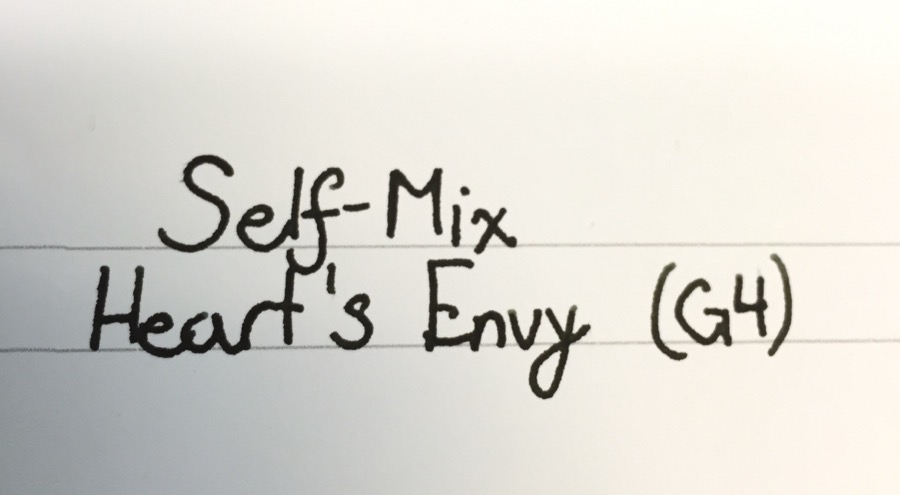 Self-Mix
Heart's Envy (G4)